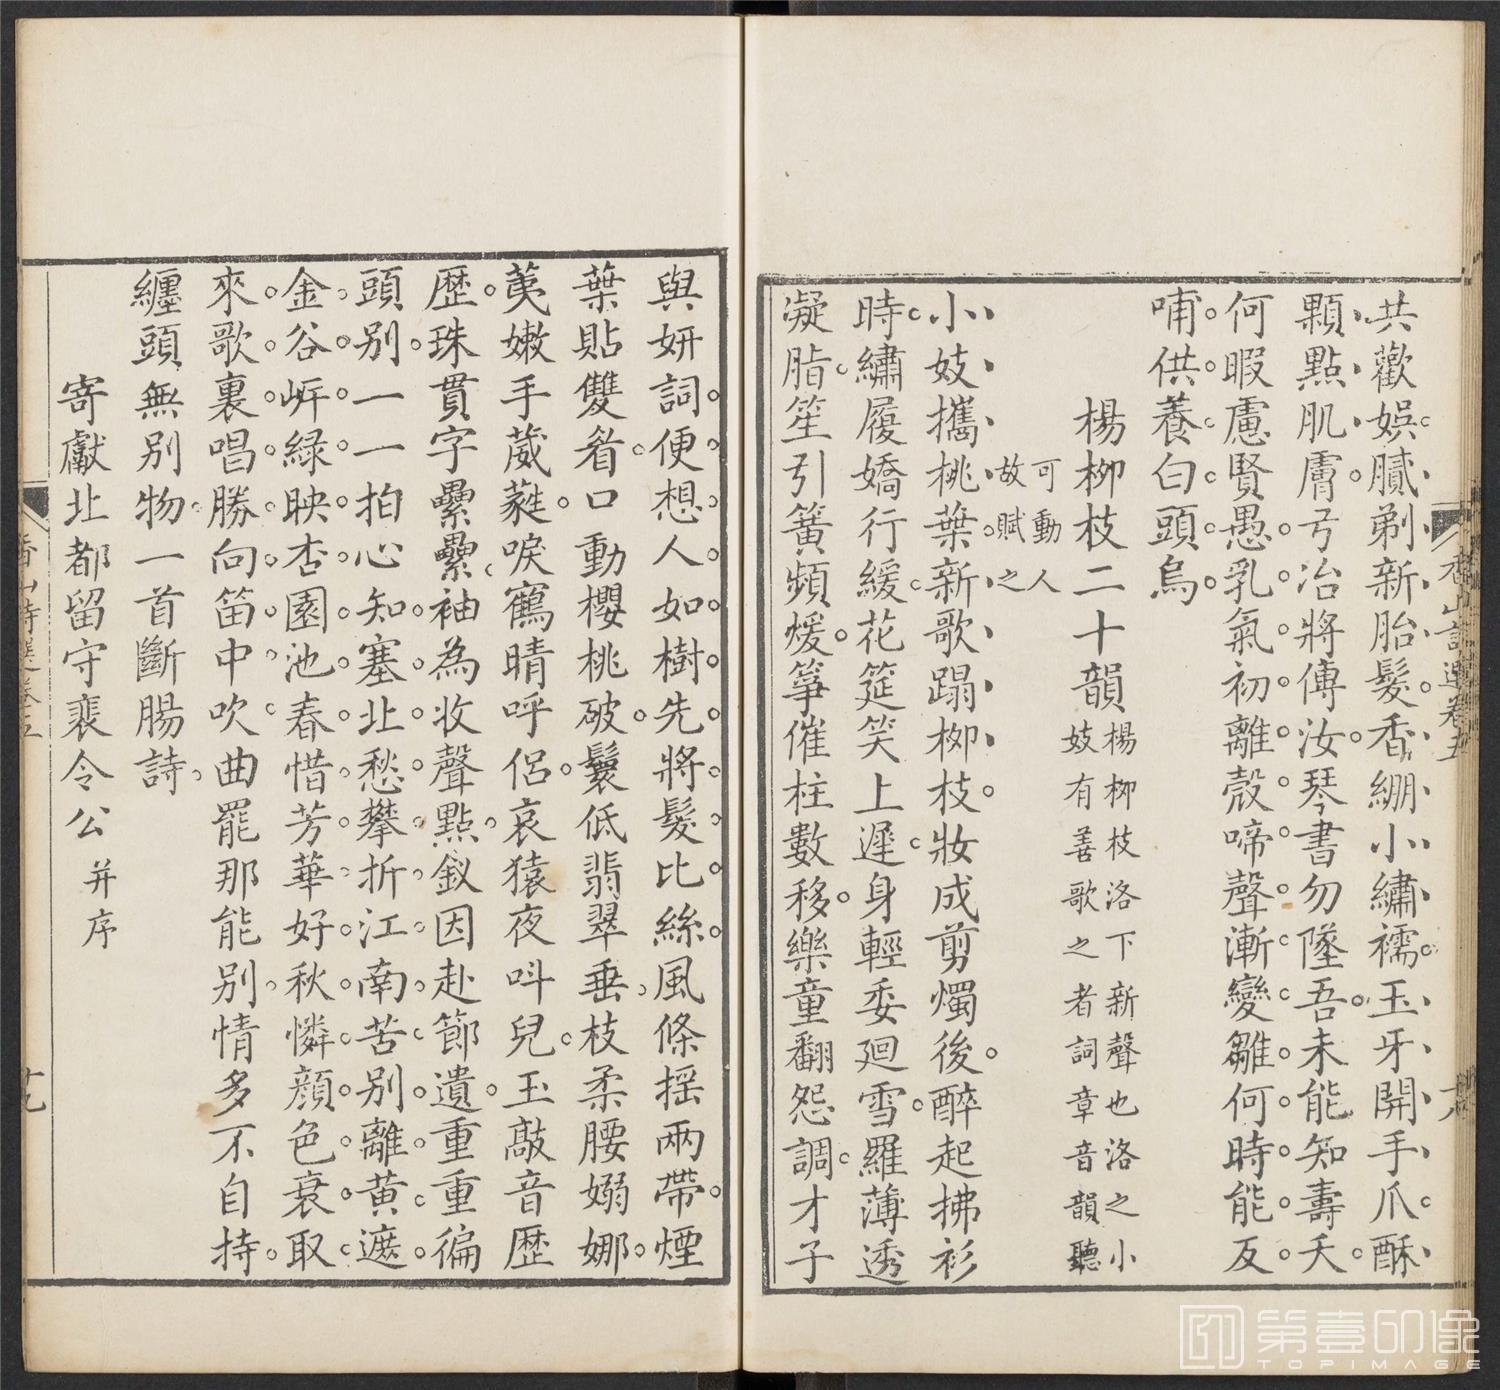 共歡娛膩剃新胎髮香綳小繡襦玉牙開手爪酥
顆點肌膚弓冶將傳汝琴書勿墜吾未能知壽夭
何暇慮賢愚乳氣初離殼啼聲漸變雛何時能反
哺供養白頭烏
楊柳枝二十韻
楊柳枝洛下新聲也洛之小
妓有善歌之者詞章音韻聽
可動人
故賦之
小妓攜桃葉新歌蹋柳枝妝成剪燭後醉起拂衫
時繡履嬌行緩花筵笑上遲身輕委迴雪羅薄透
凝脂笙引簧頻煖箏催柱數移樂童翻怨調才子
香山詩選卷五
十八
與妍詞便想人如樹先將髮比絲風條揺兩帶煙
葉貼雙眉口動櫻桃破鬟低翡翠垂枝柔腰嫋娜
荑嫩手葳蕤唳鶴晴呼侶哀猿夜呌兒玉敲音歴
歴珠貫字纍纍袖為收聲點釵因赴節遺重重徧
頭别一一拍心知塞北愁攀折江南苦别離黄遮
金谷岍緑映杏園池春惜芳華好秋憐顔色衰取
來歌裏唱勝向笛中吹曲罷那能别情多不自持
纏頭無別物一首斷腸詩
寄獻北都留守裴令公
并序
香山詩選卷五
十九
第壹印像
TOPIMAGE